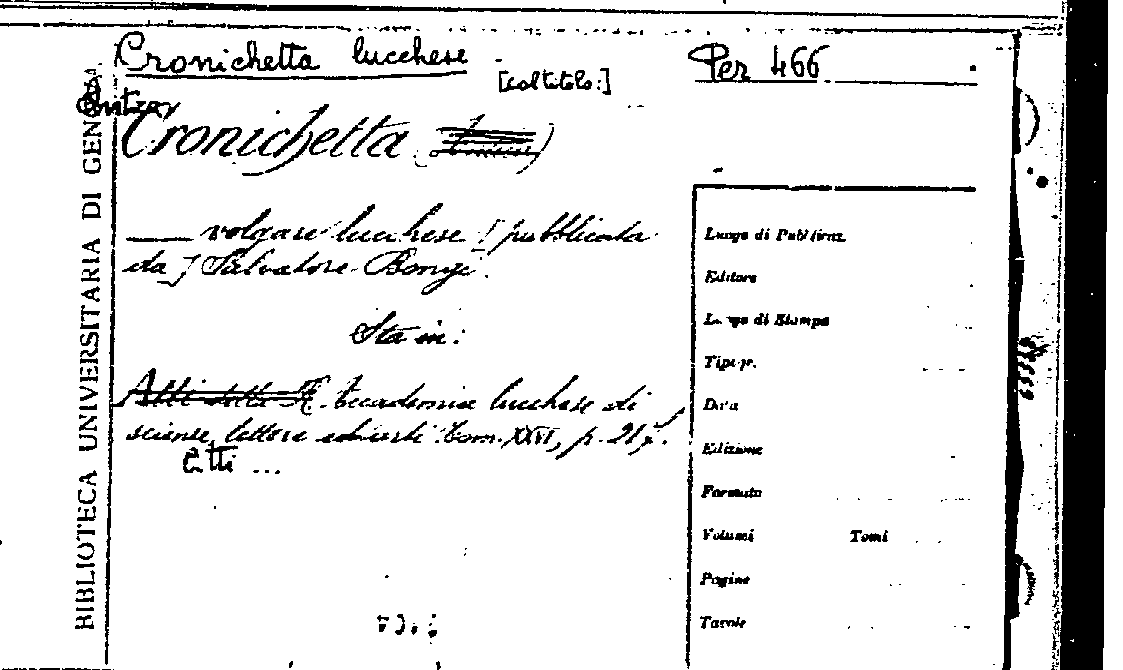 Cronichetta lucchese Per 466
[col titolo:]
Cronichetta
volgare lucchese [pubblicata
da] Salvatore Bongi.
Sta in:
Atti della R. Accademia lucchese di
scienze, lettere ed arti Tom. XXVI, p. 217.
Atti ...
BIBLIOTECA UNIVERSITARIA DI GENOVA
Luogo di Pubblicaz.
Editore
Luogo di Stampa
Tipogr.
Data
Edizione
Formato
Volumi Tomi
Pagine
Tavole